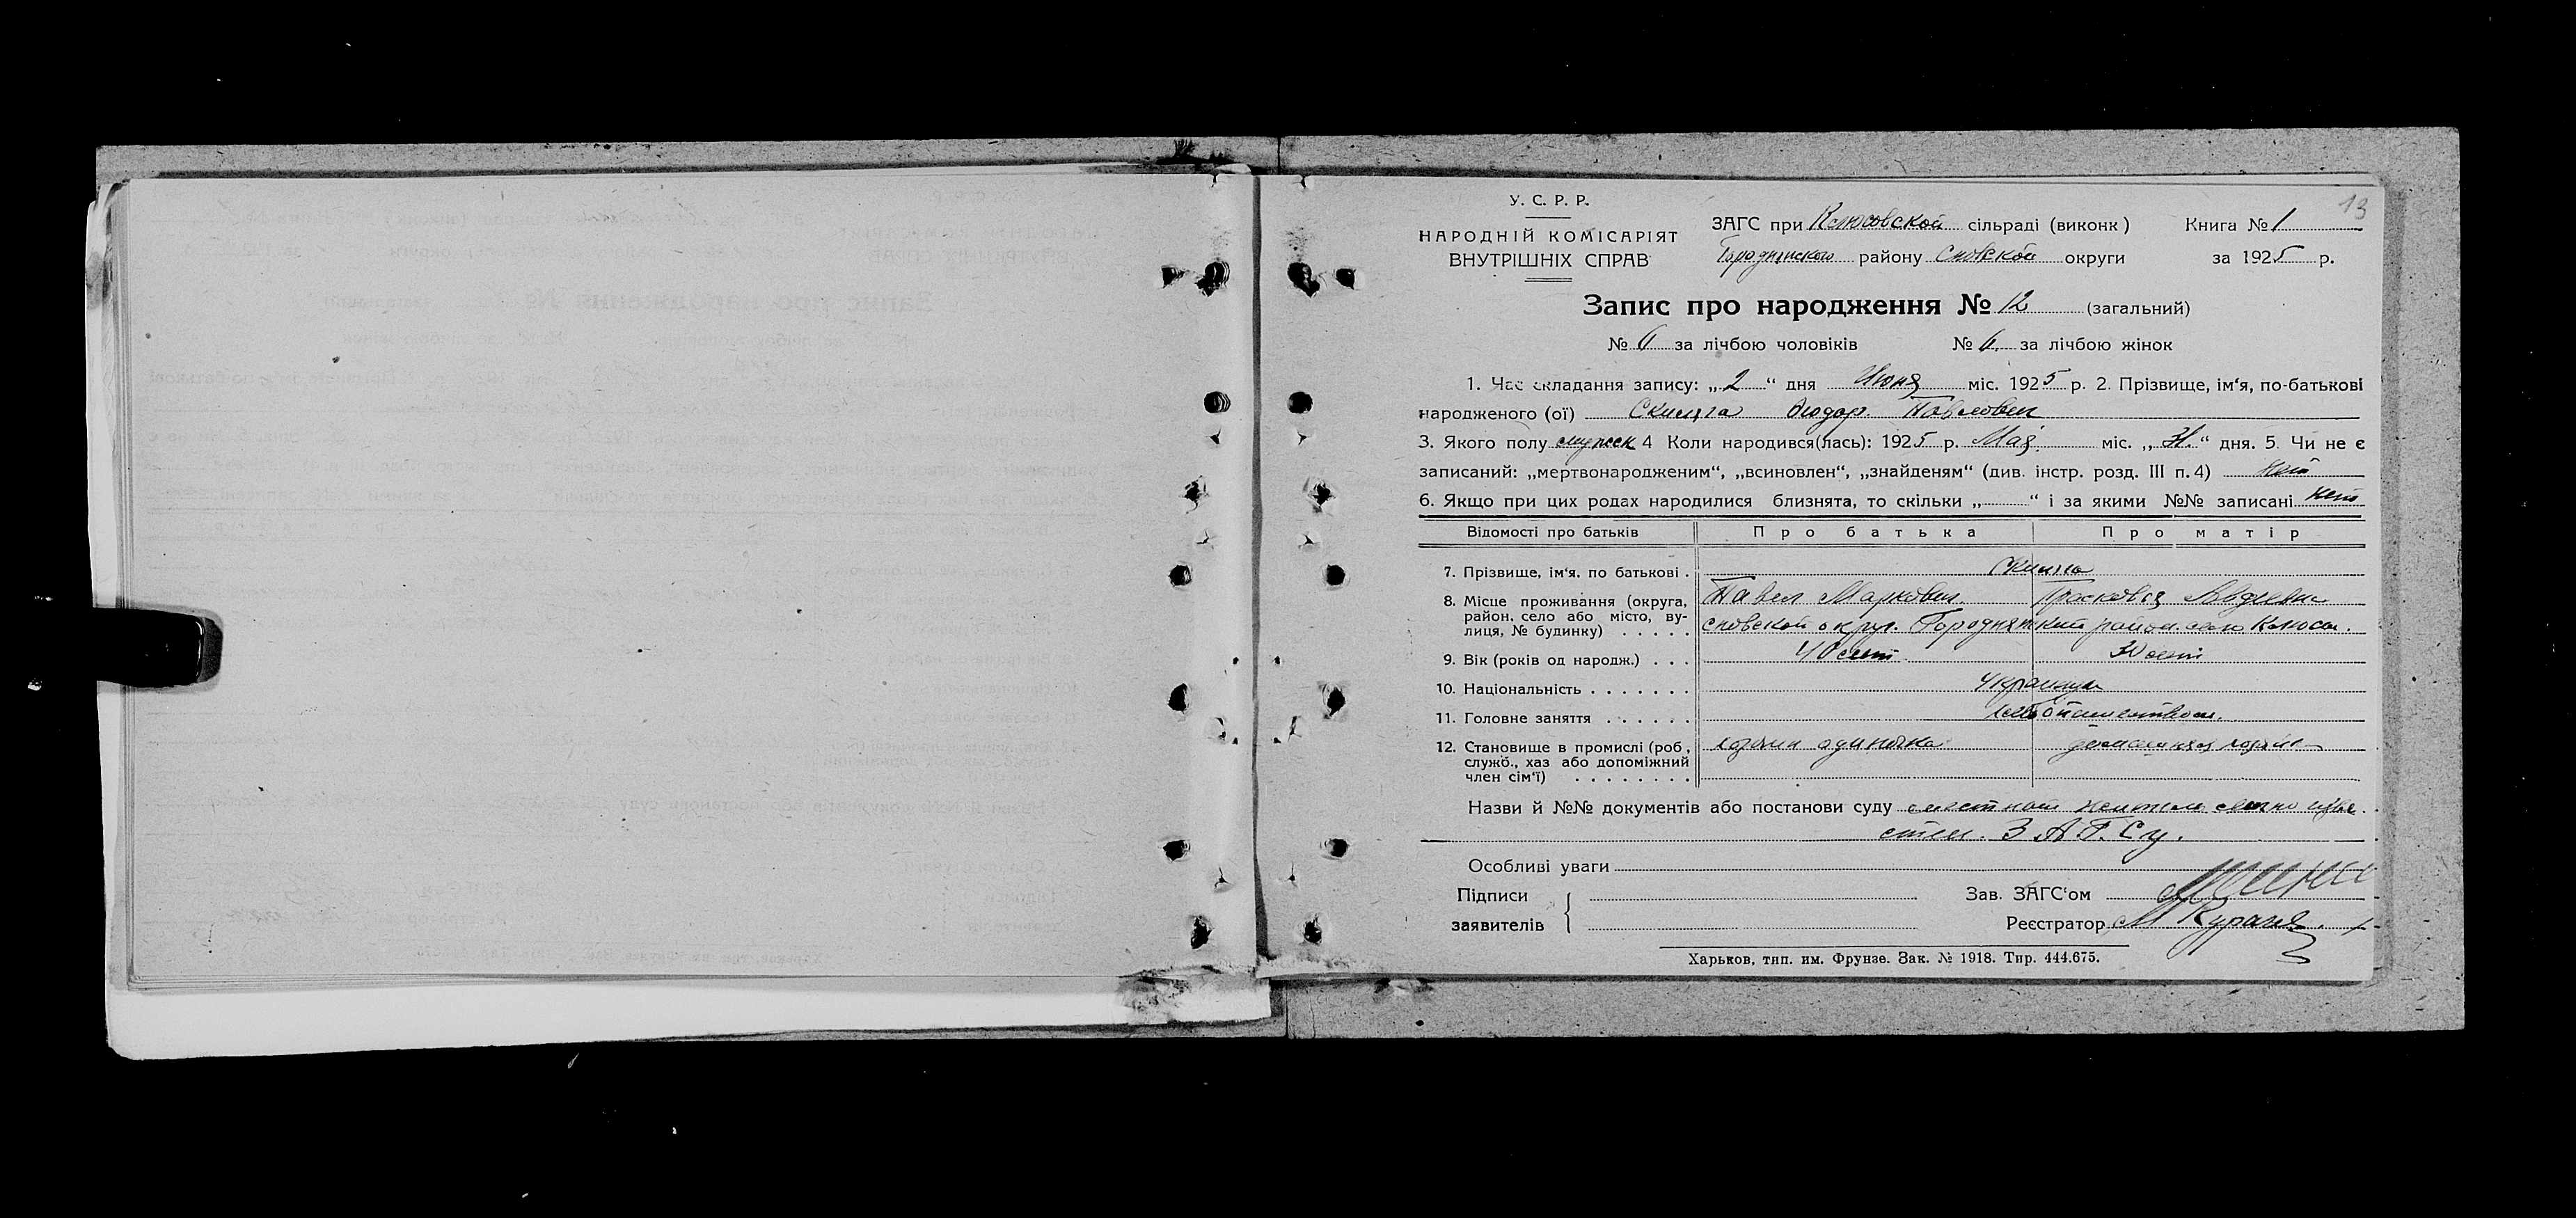 13
У. С. Р. Р.
НАРОДНІЙ КОМІСАРІЯТ
ВНУТРІШНІХ СПРАВ
ЗАГС при Клюсовской сільраді (виконк) Книга № 1
Городнянского району Сновской округи за 1925 р.
Запис про народження № 12 (загальний)
№ 6 за лічбою чоловіків № 6 за лічбою жінок
1. Час складання запису: „2“ дня Июня міс. 1925 р. 2. Прізвище, ім‘я, по-батькові
народженого (ої) Скицга Федор Павлович
3. Якого полу мужск 4 Коли народився(лась): 1925 р. Мая міс. „31“ дня. 5. Чи не є
записаний: „мертвонародженим“, „всиновлен“, „знайденям“ (див. інстр. розд. III п. 4) нет
6. Якщо при цих родах народилися близнята, то скільки „ “ і за якими №№ записані нет
Відомості про батьків Про батька Про матір
7. Прізвище, ім‘я. по батькові .
8. Місце проживання (округа, Павел Маркович Прасковья
район. село або місто, ву- Сновской округ. Городнянский район. село Клюсы.
лиця, № будинку) . . . . .
9. Вік (років од народж.) . . . 40 лет 30 лет
10. Національність . . . . . . . Украинцы
11. Головне заняття . . . . . . хлебопашеством.
12. Становище в промислі (роб, хозяин одиночка домашняя
служб., хаз або допоміжний
член сім‘ї) . . . . . . . .
Назви й №№ документів або постанови суду лично изве
стен. ЗАГСу.
Особливі уваги
Підписи Зав. ЗАГС‘ом
заявителів Реєстратор М
Харьков, тип. им. Фрунзе. Зак. № 1918. Тир. 444.675.